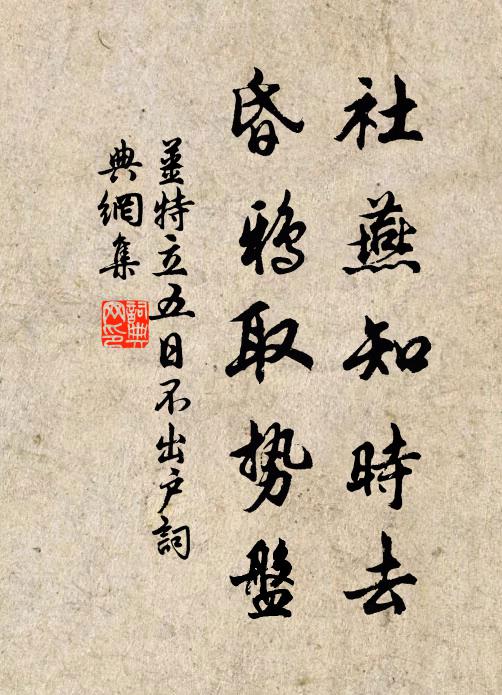 社燕知時去
昏鴉取勢盤
薑特立五日不出户詞
典網集
詞典網印